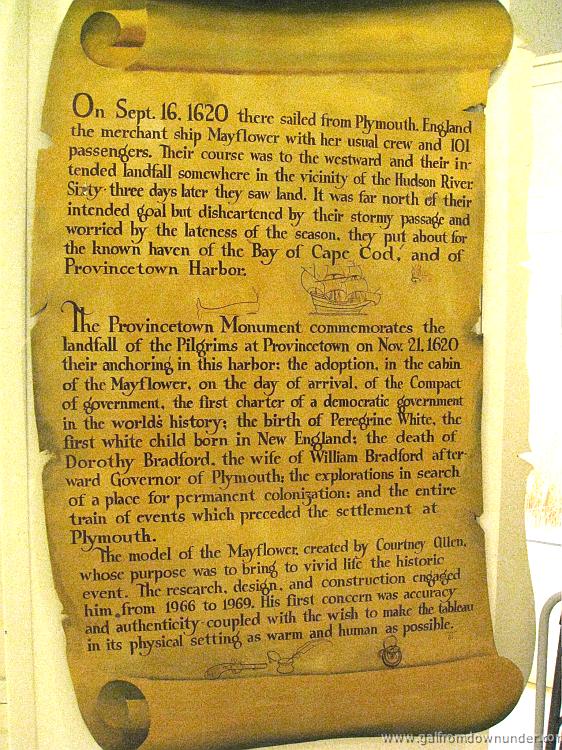 On Sept. 16, 1620 there sailed from Plymouth, England
the merchant ship Mayflower with her usual crew and 101
passengers. Their course was to the westward and their in-
tended landfall somewhere in the vicinity of the Hudson River.
Sixty-three days later they saw land. It was far north of their
intended goal but disheartened by their stormy passage and
worried by the lateness of the season, they put about for
the known haven of the Bay of Cape Cod, and of
Provincetown Harbor.
The Provincetown Monument commemorates the
landfall of the Pilgrims at Provincetown on Nov. 21, 1620
their anchoring in this harbor; the adoption, in the cabin
of the Mayflower, on the day of arrival, of the Compact
of government, the first charter of a democratic government
in the world's history; the birth of Peregrine White, the
first white child born in New England; the death of
Dorothy Bradford, the wife of William Bradford after-
ward Governor of Plymouth; the explorations in search
of a place for permanent colonization; and the entire
train of events which preceded the settlement at
Plymouth.
The model of the Mayflower, created by Courtney Allen,
whose purpose was to bring to vivid life the historic
event. The research, design, and construction engaged
him from 1966 to 1969. His first concern was accuracy
and authenticity coupled with the wish to make the tableau
in its physical setting as warm and human as possible.
www.galfromdownunder.com